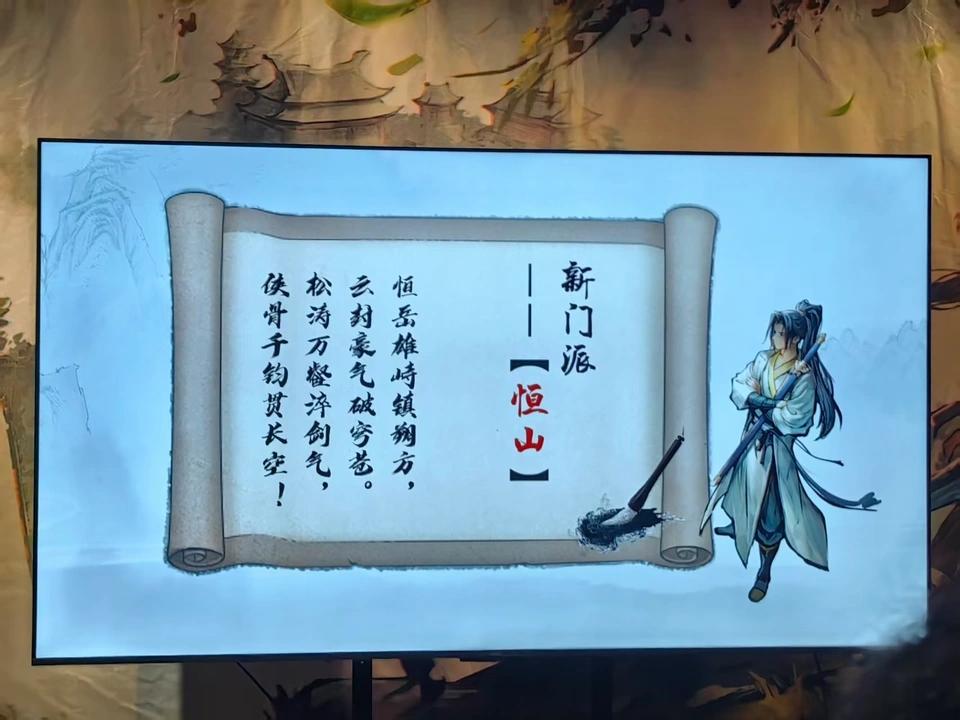 新门派
——【恒山】
恒岳雄峙镇朔方，
云封豪气破穹苍。
松涛万壑淬剑气，
侠骨千钧贯长空！